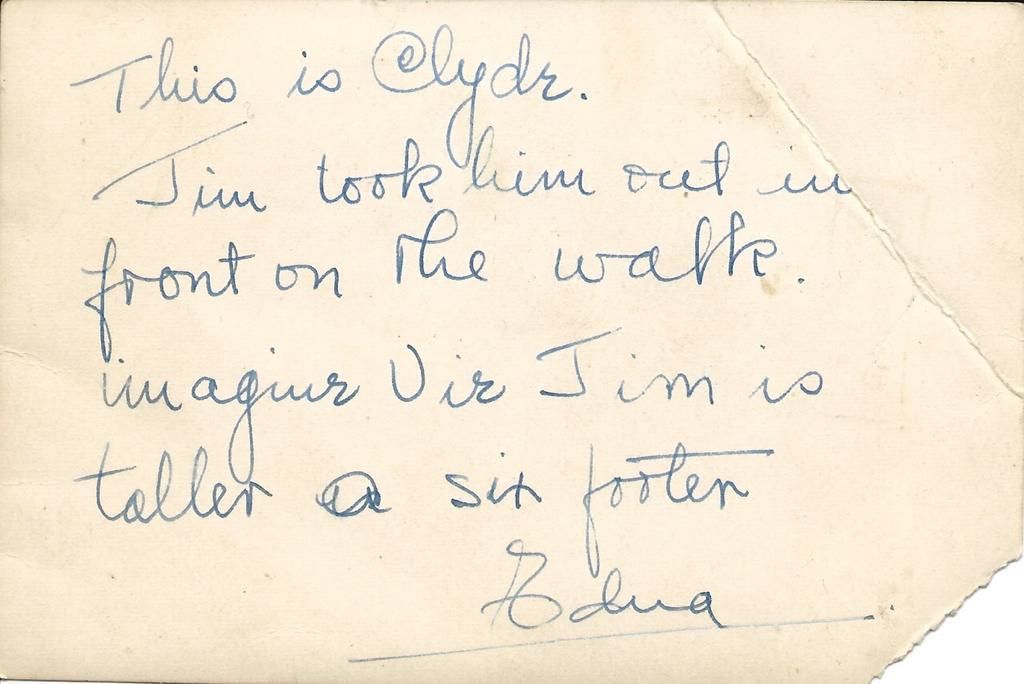 This is Clyde.
Jim took him out in
front on the walk.
imagine Vie Jim is
taller a six footer
Edna